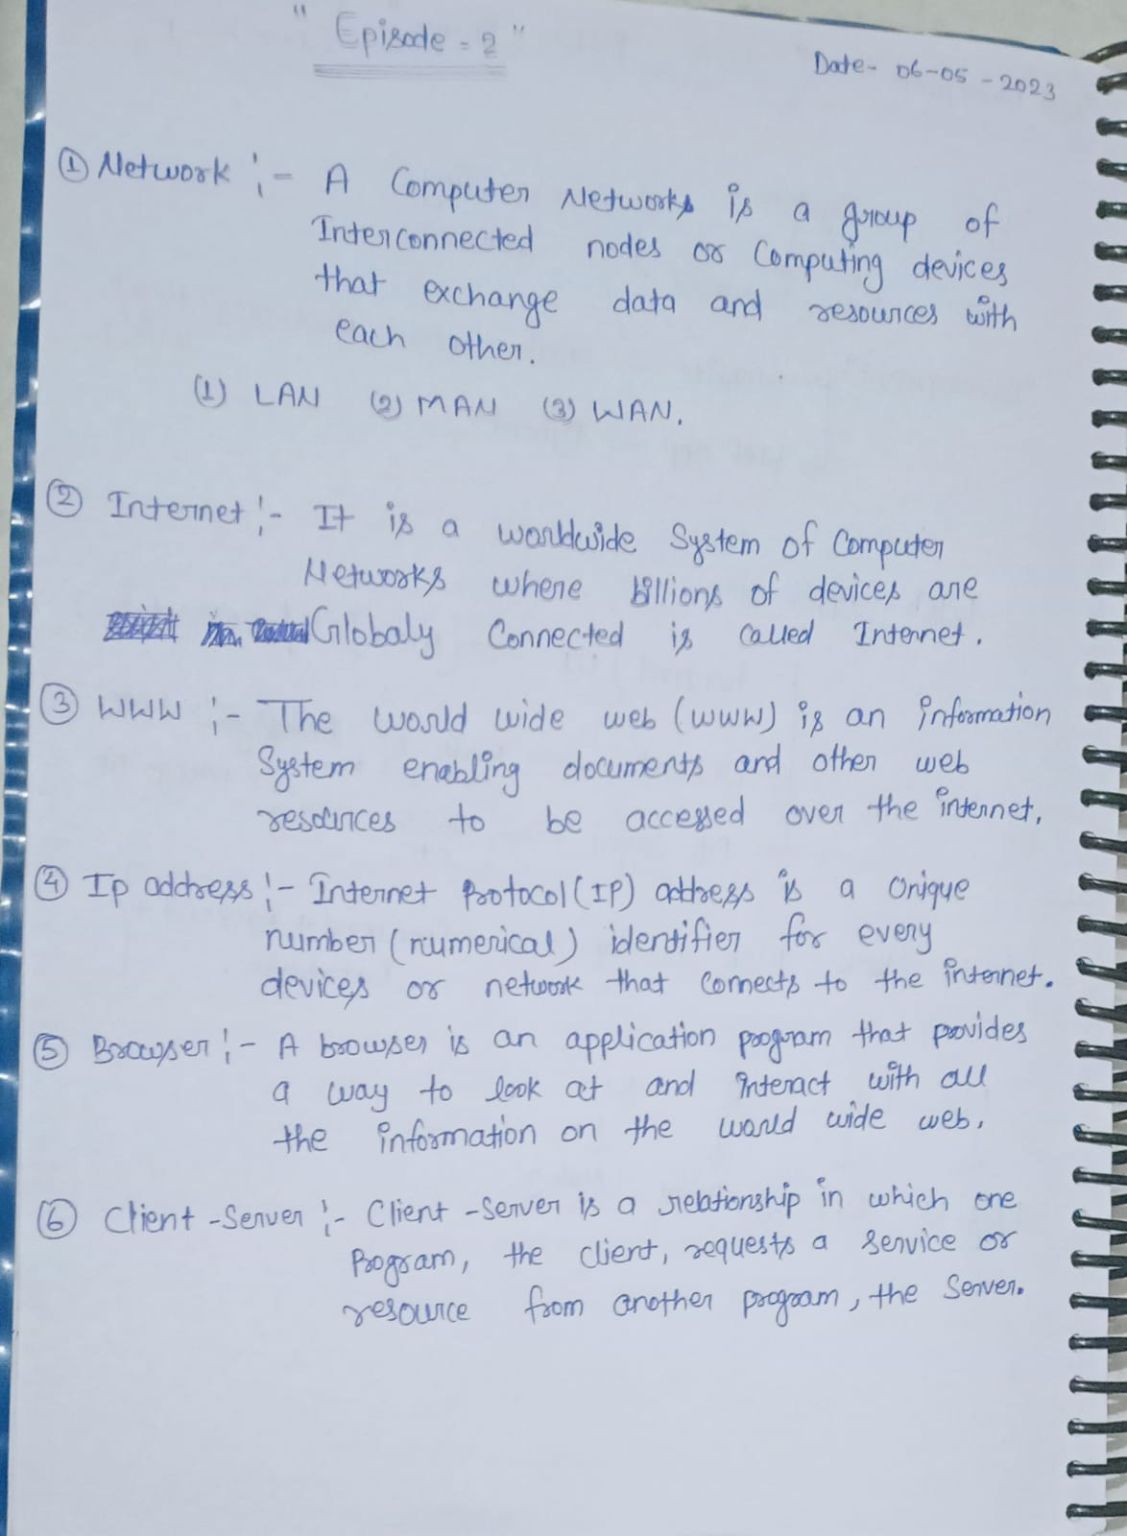 " Episode = 2 "
Date- 06-05-2023
① Network :- A Computer Networks is a group of
Interconnected nodes or Computing devices
that exchange data and resources with
each other.
(1) LAN (2) MAN (3) WAN.
② Internet :- It is a worldwide System of Computer
Networks where billions of devices are
Globaly Connected is called Internet.
③ WWW :- The world wide web (WWW) is an information
System enabling documents and other web
resources to be accessed over the internet.
④ Ip address :- Internet Protocol (IP) address is a Unique
number (numerical) identifier for every
devices or network that connects to the internet.
⑤ Browser :- A browser is an application program that provides
a way to look at and interact with all
the information on the world wide web.
⑥ Client-Server :- Client-Server is a relationship in which one
Program, the client, requests a service or
resource from another program, the Server.